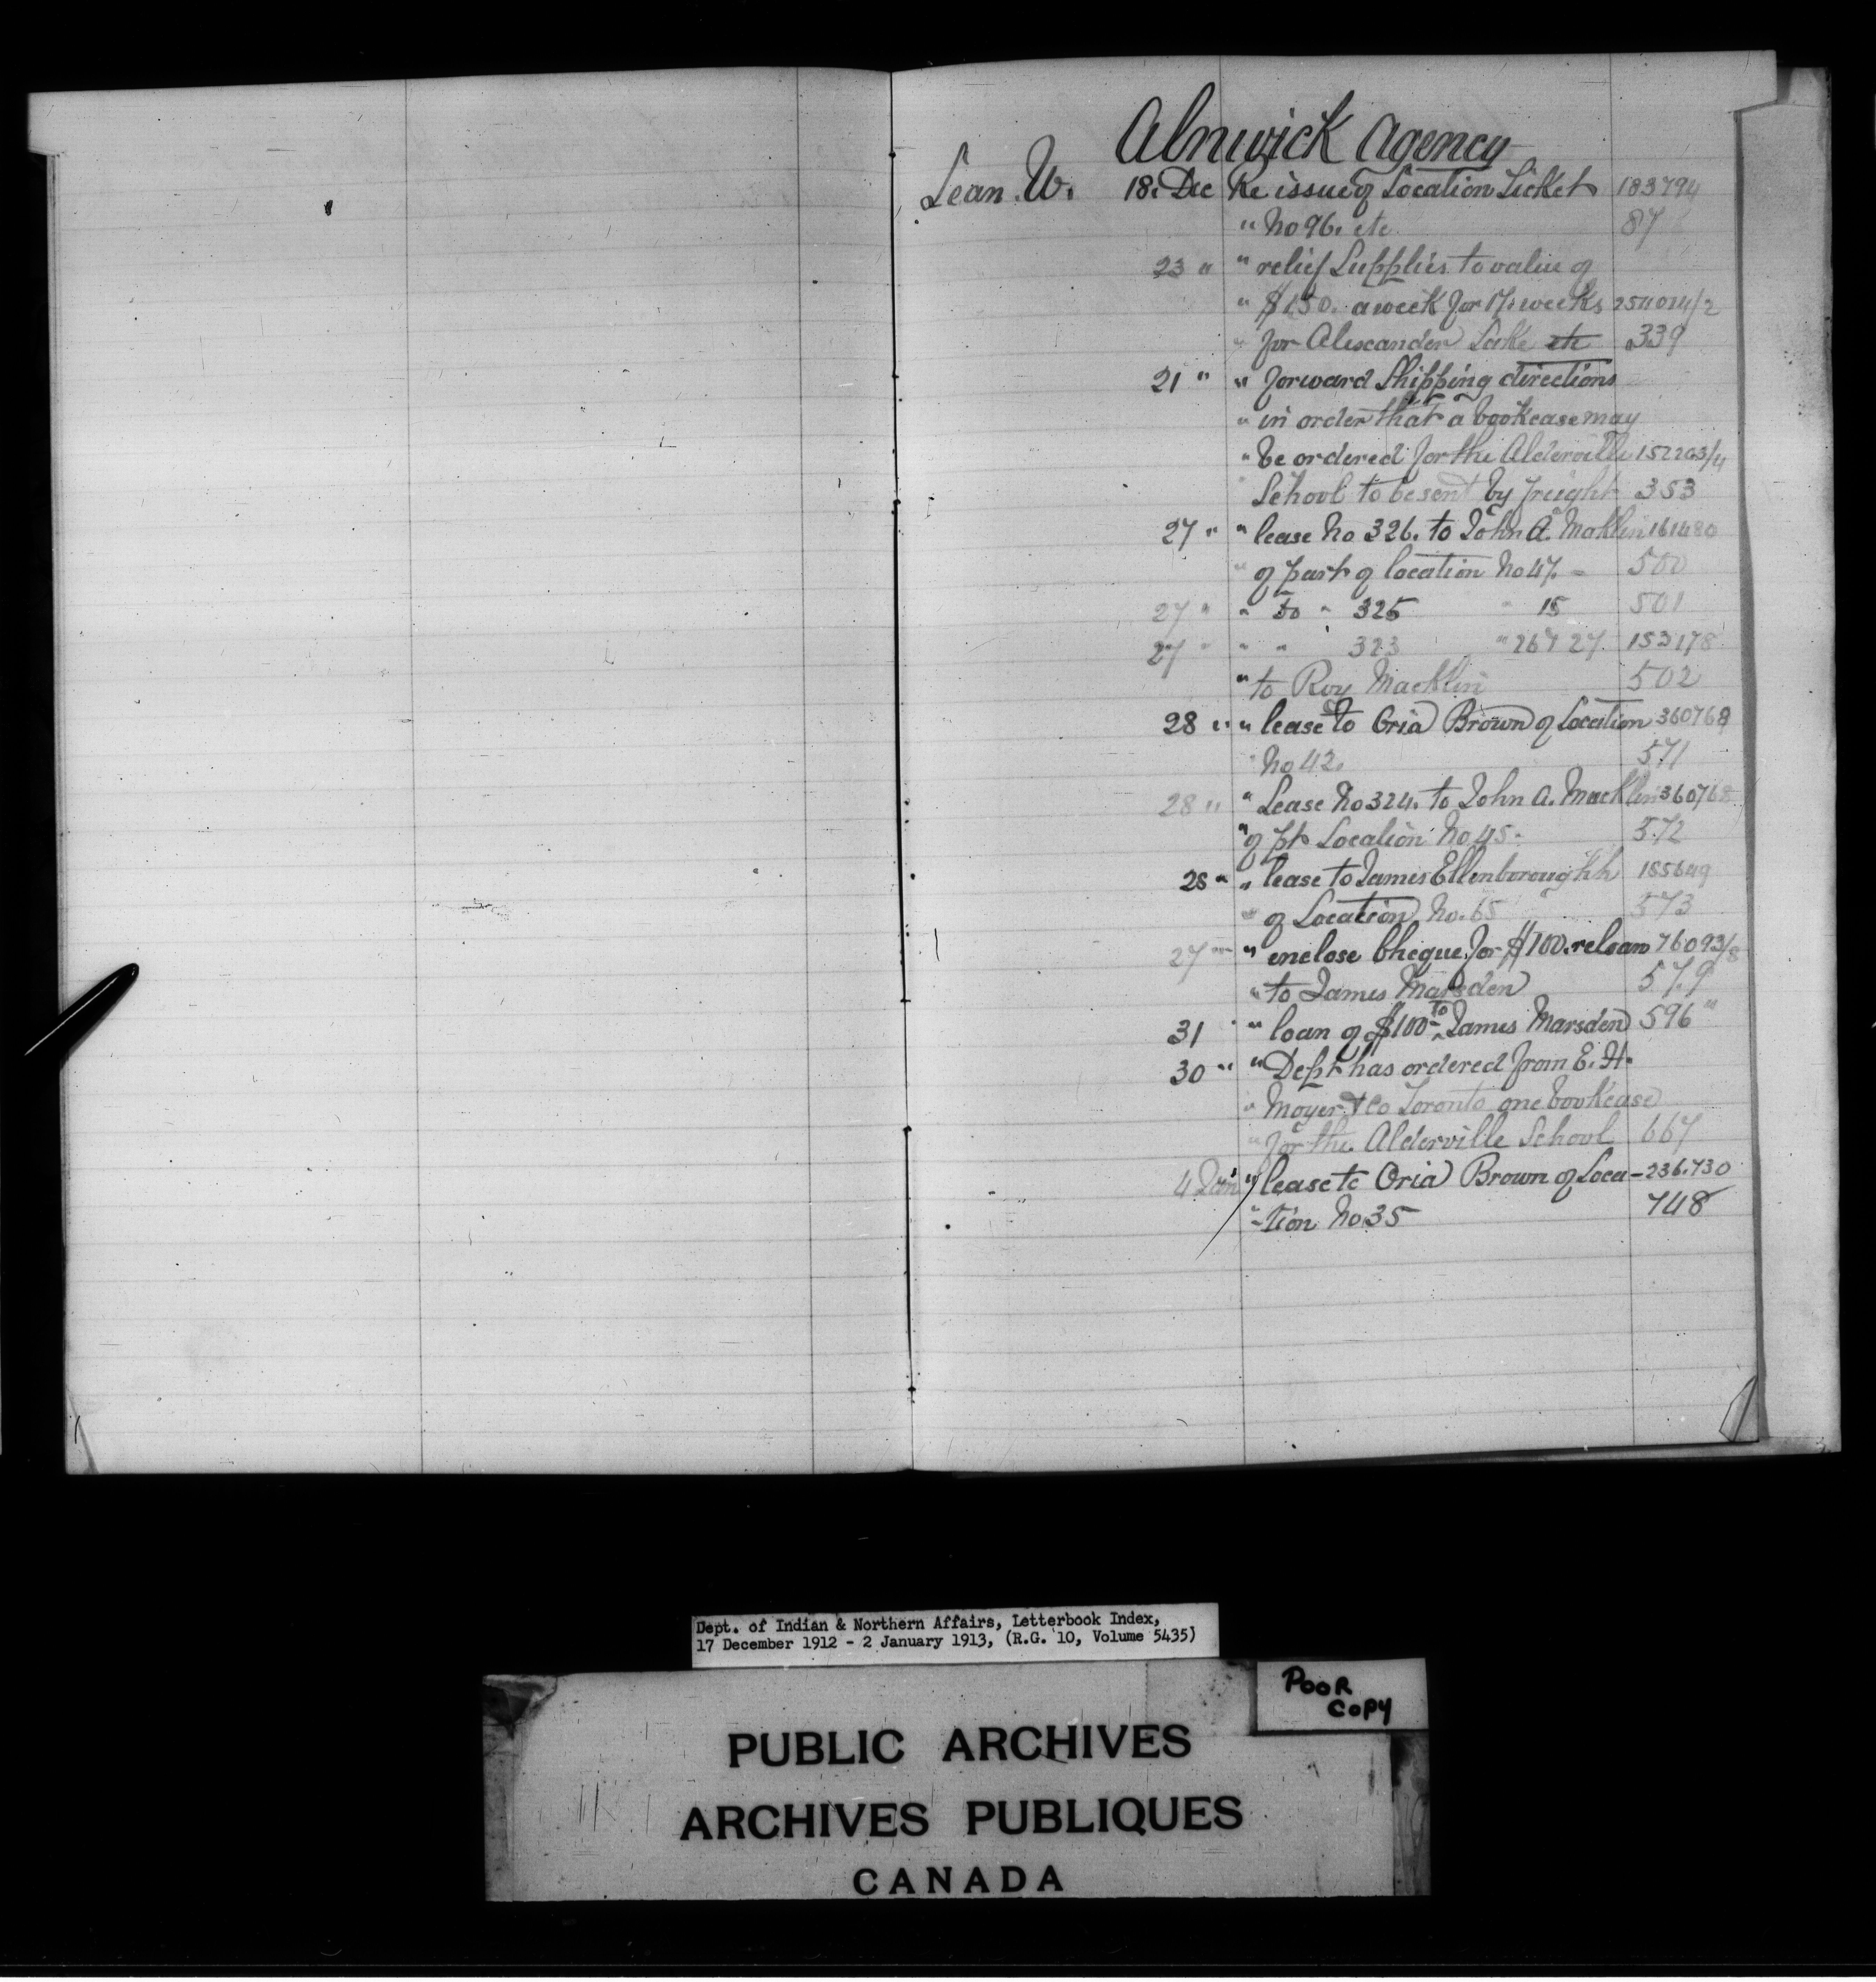 Alnwick Agency
Lean W. 18. Dec Re issue of Location Ticket 183794
" No 96. etc 87
23 " " relief Supplies to value of
" $1.50. a week for 17. weeks 254014/2
" for Alexander Lake etc 339
21 " " forward Shipping directions
" in order that a bookcase may
" be ordered for the Alderville 152263/4
" School to be sent by freight 353
27 " " lease No 326. to John A. Macklin 161480
" of part of location No 47. - 500
27 " " Do " 325 " 15 501
27 " " " 323 " 26 & 27 153178
" to Roy Macklin 502
28 " " lease to Oria Brown of Location 360768
" No 42. 571
28 " " Lease No 324. to John A. Macklin 360768
" of pt Location No 45. 572
28 " " lease to James Ellenboroughh 185649
" of Location No. 65 573
27 " " enclose Cheque for $100. reloan 76093/8
" to James Marsden 579
31 " " loan of $100- To James Marsden 596 "
30 " " Dept has ordered from E. H.
" Moyer & Co Toronto one bookcase
" for the Alderville School 667
4 Jan " lease to Oria Brown of Loca- 236.730
"-tion No 35 748
Dept. of Indian & Northern Affairs, Letterbook Index,
17 December 1912 - 2 January 1913, (R.G. 10, Volume 5435)
POOR
COPY
PUBLIC ARCHIVES
ARCHIVES PUBLIQUES
CANADA